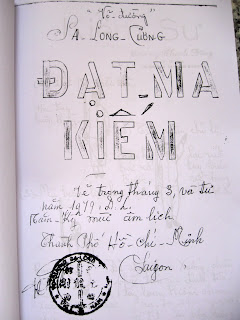 "Võ-đường"
SA-LONG-CƯƠNG
ĐẠT-MA
KIẾM
Vẽ trong tháng 3, và tư
năm 1979. d.l.
mùi âm lịch
Thành Phố Hồ-Chí-Minh
Saigon